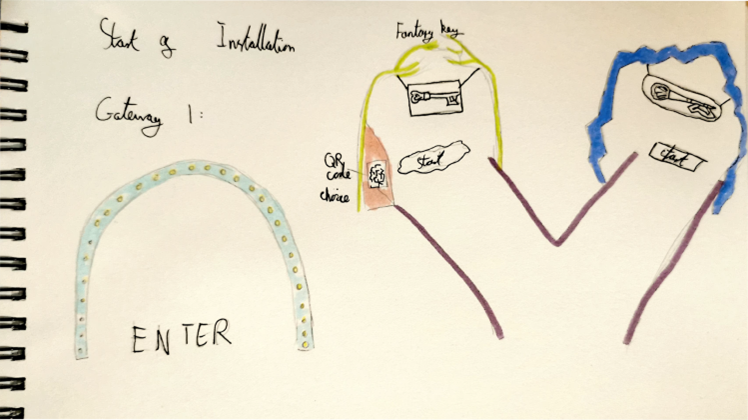 Start of Installation
Gateway 1:
ENTER
Fantasy key
QR
code
choice
start
start